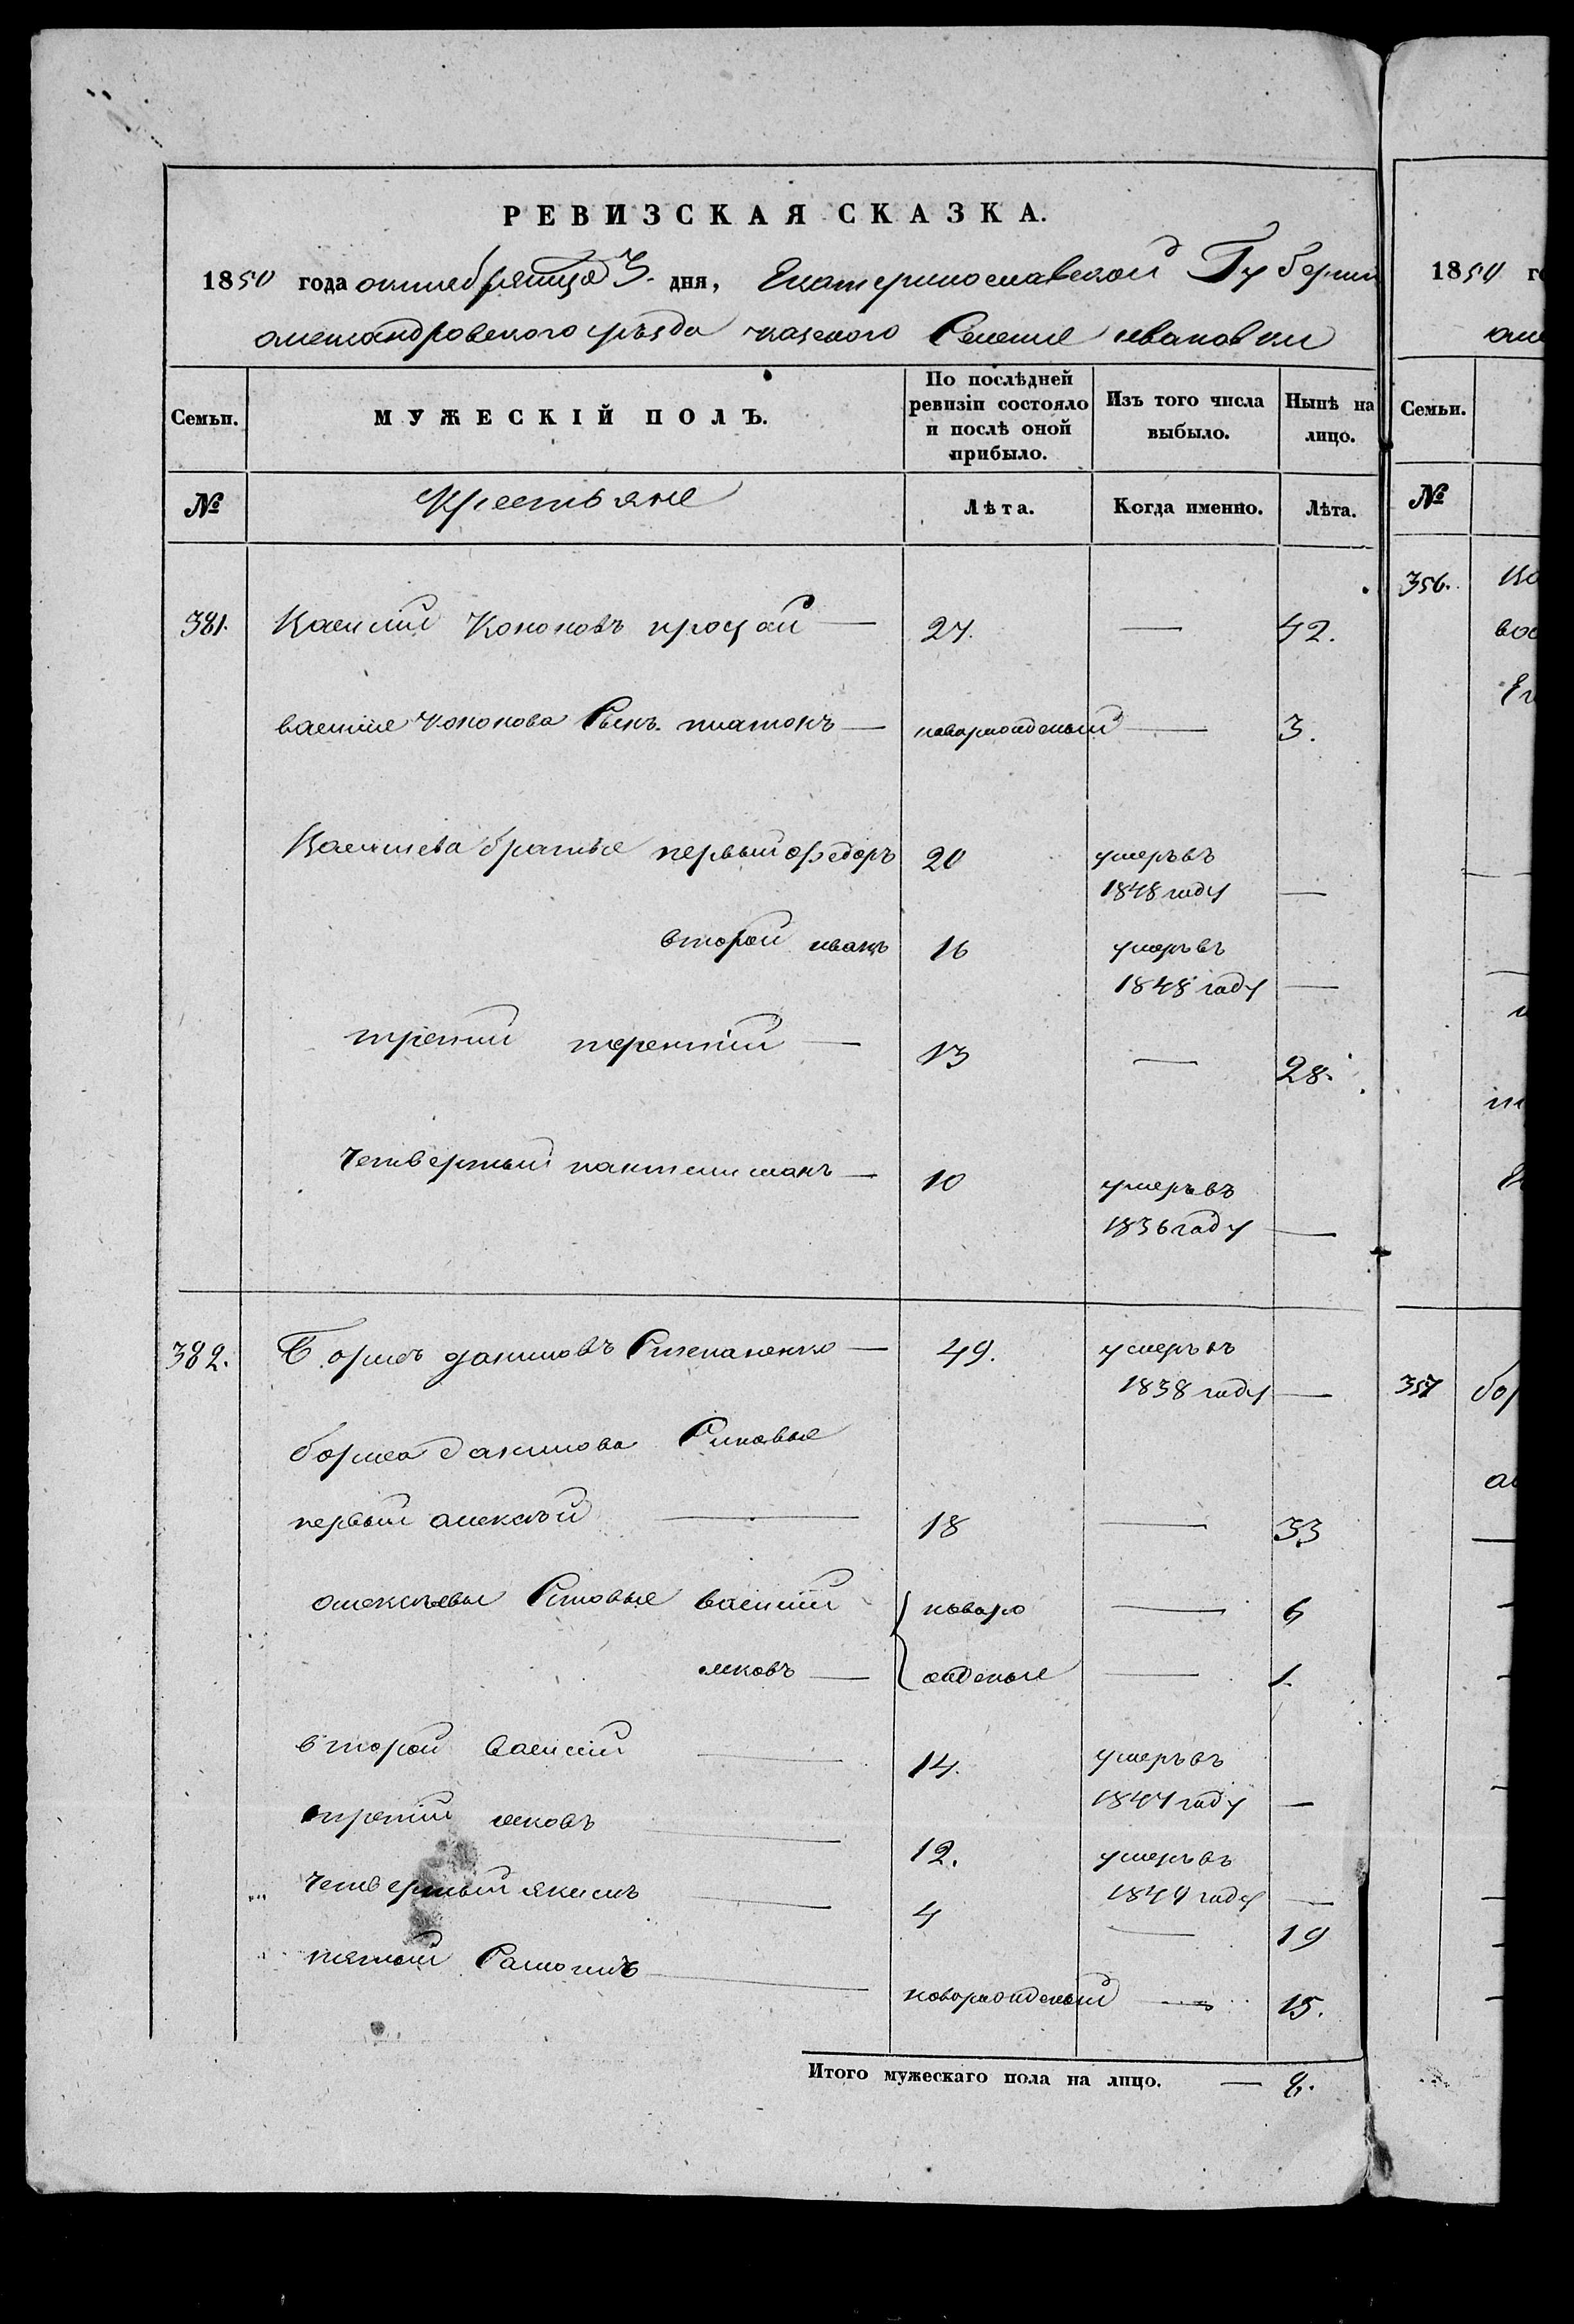 РЕВИЗСКАЯ СКАЗКА.
1850 года октиебря мца 3. дня, Екатеринославской Губернии
александровского уъзда казеного Селение ивановки
Семьи.
МУЖЕСКІЙ ПОЛЪ.
По послѣдней ревизіи состояло и послѣ оной прибыло.
Изъ того числа выбыло.
Нынѣ на лицо.
№
Крестьяне
Лѣта.
Когда именно.
Лѣта.
381. Василий Кононовъ — 27. — 42.
василие Кононова Сынъ платонъ — новарожденый — 3.
Василиева братье первый федоръ 20 умеръ въ
1848 году —
второй иванъ 16 умеръ въ
1848 году —
третий терентий — 13 — 28.
Четвертый пантелимонъ — 10 умеръ въ
1836 году —
382. Борисъ даниловъ Степаненко — 49. умеръ въ
1838 году —
бориса данилова Синовье
первый алексъй — 18 — 33
алексъевы Синовье василий { новаро — 6
яковъ — { жденые — 1.
второй василий — 14. умеръ въ
1847 году —
третий яковъ — 12. умеръ въ
1849 году —
Четвертый якимъ — 4 — 19
пятый Самоилъ — новарожденый — 15.
Итого мужескаго пола на лицо. — 8.
1850
Семьи.
№
356.
357